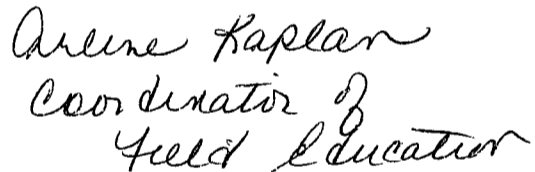 Arlene Kaplan
Coordinator of
Field Education